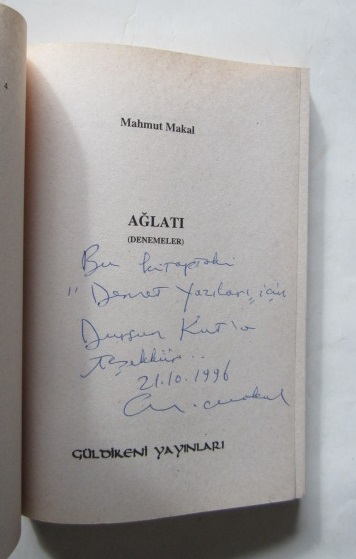 4.
Mahmut Makal
AĞLATI
(DENEMELER)
Bu kitaptaki
" Demet Yazıları için
Dursun Kut'a
Teşekkür..
21.10.1996
M. Makal
GÜLDİKENİ YAYINLARI